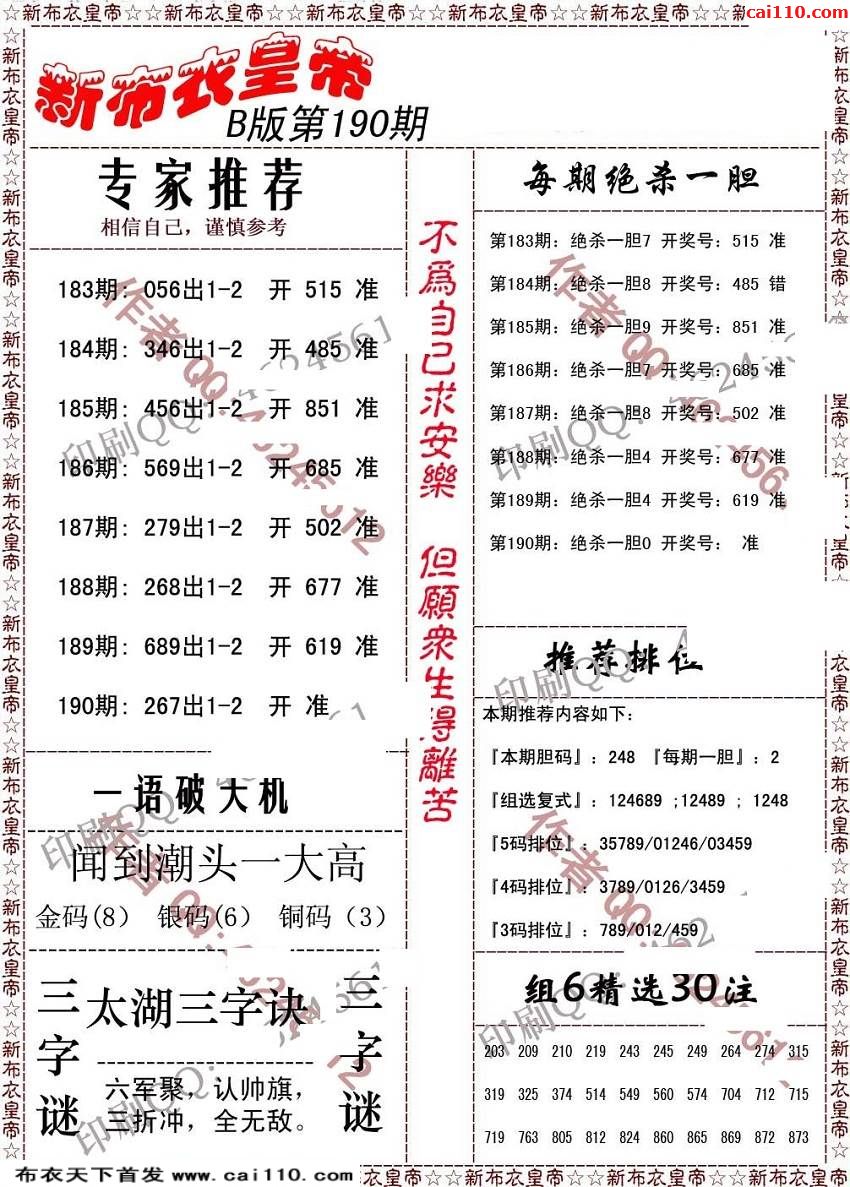 ☆☆新布衣皇帝☆☆新布衣皇帝☆☆新布衣皇帝☆☆新布衣皇帝☆☆新布衣皇帝☆☆新布衣皇帝☆☆新
cai110.com
新布衣皇帝
B版第190期
专家推荐
相信自己，谨慎参考
183期: 056出1-2 开 515 准
184期: 346出1-2 开 485 准
185期: 456出1-2 开 851 准
186期: 569出1-2 开 685 准
187期: 279出1-2 开 502 准
188期: 268出1-2 开 677 准
189期: 689出1-2 开 619 准
190期: 267出1-2 开 准
一语破大机
闻到潮头一大高
金码(8) 银码(6) 铜码（3）
三字谜
太湖三字诀
六军聚，认帅旗，
三折冲，全无敌。
三字谜
不為自己求安樂 但願眾生得離苦
每期绝杀一胆
第183期：绝杀一胆7 开奖号：515 准
第184期：绝杀一胆8 开奖号：485 错
第185期：绝杀一胆9 开奖号：851 准
第186期：绝杀一胆7 开奖号：685 准
第187期：绝杀一胆8 开奖号：502 准
第188期：绝杀一胆4 开奖号：677 准
第189期：绝杀一胆4 开奖号：619 准
第190期：绝杀一胆0 开奖号： 准
推荐排位
本期推荐内容如下：
『本期胆码』：248 『每期一胆』：2
『组选复式』：124689 ;12489 ; 1248
『5码排位』：35789/01246/03459
『4码排位』：3789/0126/3459
『3码排位』：789/012/459
组6精选30注
203 209 210 219 243 245 249 264 274 315
319 325 374 514 549 560 574 704 712 715
719 763 805 812 824 860 865 869 872 873
布衣天下首发 www.cai110.com
衣皇帝☆☆新布衣皇帝☆☆新布衣皇帝☆☆新布衣皇帝☆☆新布衣皇帝☆